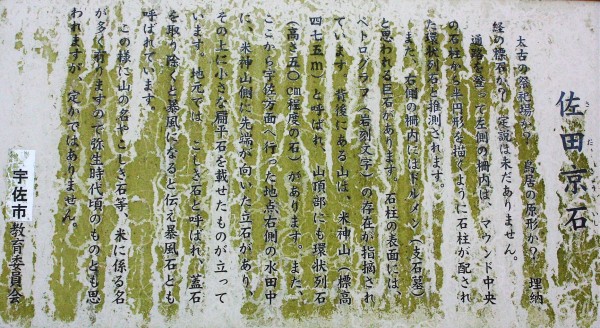 佐田京石
太古の祭祀場か？　鳥居の原形か？　埋納
経の標石か？　定説は未だありません。
通路で登って左側の柵内は、マウンド中央
の石柱から半円形を描くように石柱が配され
た環状列石と推測されます。
また、右側の柵内にはドルメン（支石墓）
と思われる巨石があります。石柱の表面には、
ペトログラフ（岩刻文字）の存在が指摘され
ています。背後にある山は、米神山（標高
四七五ｍ）と呼ばれ、山頂部にも環状列石
（高さ五〇㎝程度の石）があります。また、
ここから宇佐方面へ行った地点右側の水田中
に、米神山側に先端が向いた立石があり、
その上に小さな扁平石を載せたものが立って
います。地元では、こしき石と呼ばれ、蓋石
を取り除くと暴風になると伝え暴風石とも
呼ばれています。
この様に山の名やこしき石等、米に係る名
が多く有りますので弥生時代頃のものとも思
われますが、定かではありません。
宇佐市教育委員会